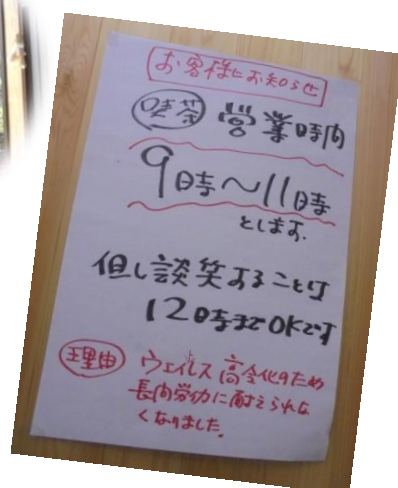 お客様にお知らせ
喫茶 営業時内
9時〜11時
とします.
但し談笑することは
12時までOKです
理由 ウェイレス高令化のため
長内労仂に耐えられな
くなりました.